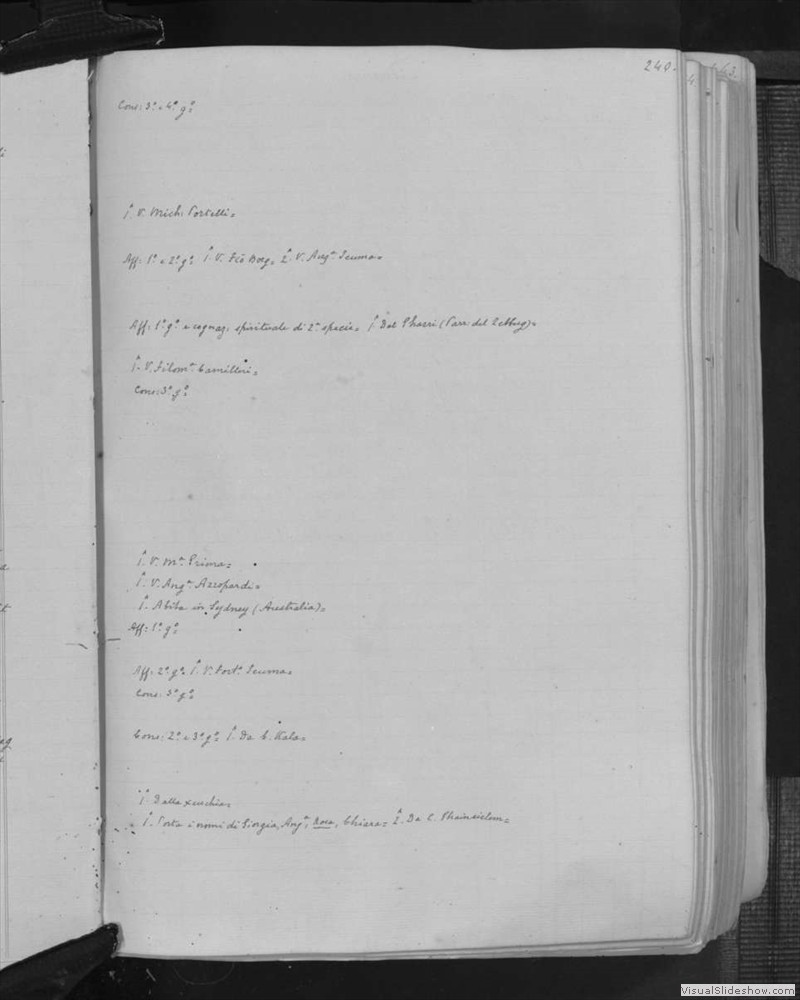 240.
Cons: 3º e 4º gº
1º V. Mich: Portelli=
Aff: 1º e 2º gº 1º V. Fcò Borg= 2º V. Angª Scuma=
Aff: 1º gº e cognaz. spirituale di 2ª specie= 1º Del Pharri (Parr. del Zebbug)=
1º V. Filomª Camilleri=
Cons: 3º gº
1º V. Mª Prima=
1º V. Angª Azzopardi=
1º Abita in Sydney (Australia)=
Aff: 1º gº
Aff: 2º gº 1º V. Fortª Scuma=
Cons: 3º gº
Cons: 2º e 3º gº 1º Da C. Kala=
1º Dalla xeuchia=
1º Porta i nomi di Giorgia, Angª, Rosa, Chiara= 2º Da C. Phainsielem=
VisualSlideshow.com